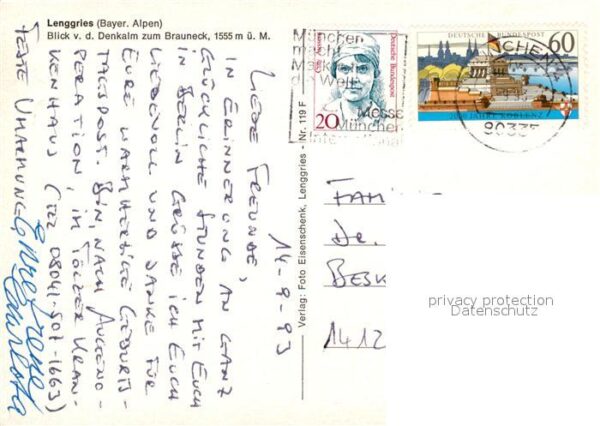 Lenggries (Bayer. Alpen)
Blick v. d. Denkalm zum Brauneck, 1555 m ü. M.
14-9-93
LIEBE FREUNDE,
IN ERINNERUNG AN GANZ
GLÜCKLICHE STUNDEN MIT EUCH
IN BERLIN GRÜSSE ICH EUCH
LIEBEVOLL UND DANKE FÜR
EURE WARMHERZIGE GEBURTS-
TAGSPOST. BIN, NACH AUGENO-
PERATION, IM TÖLZER KRAN-
KENHAUS (TEL 08041-507-1663)
FESTE UMARMUNG,
Verlag: Foto Eisenschenk, Lenggries - Nr. 119 F
München
macht
Märkte
der Welt
Messe
München
International
Deutsche Bundespost
20
DEUTSCHE BUNDESPOST
60
2000 JAHRE KOBLENZ
MÜNCHEN
80335
FAMI
Dr.
BESK
1412
privacy protection
Datenschutz